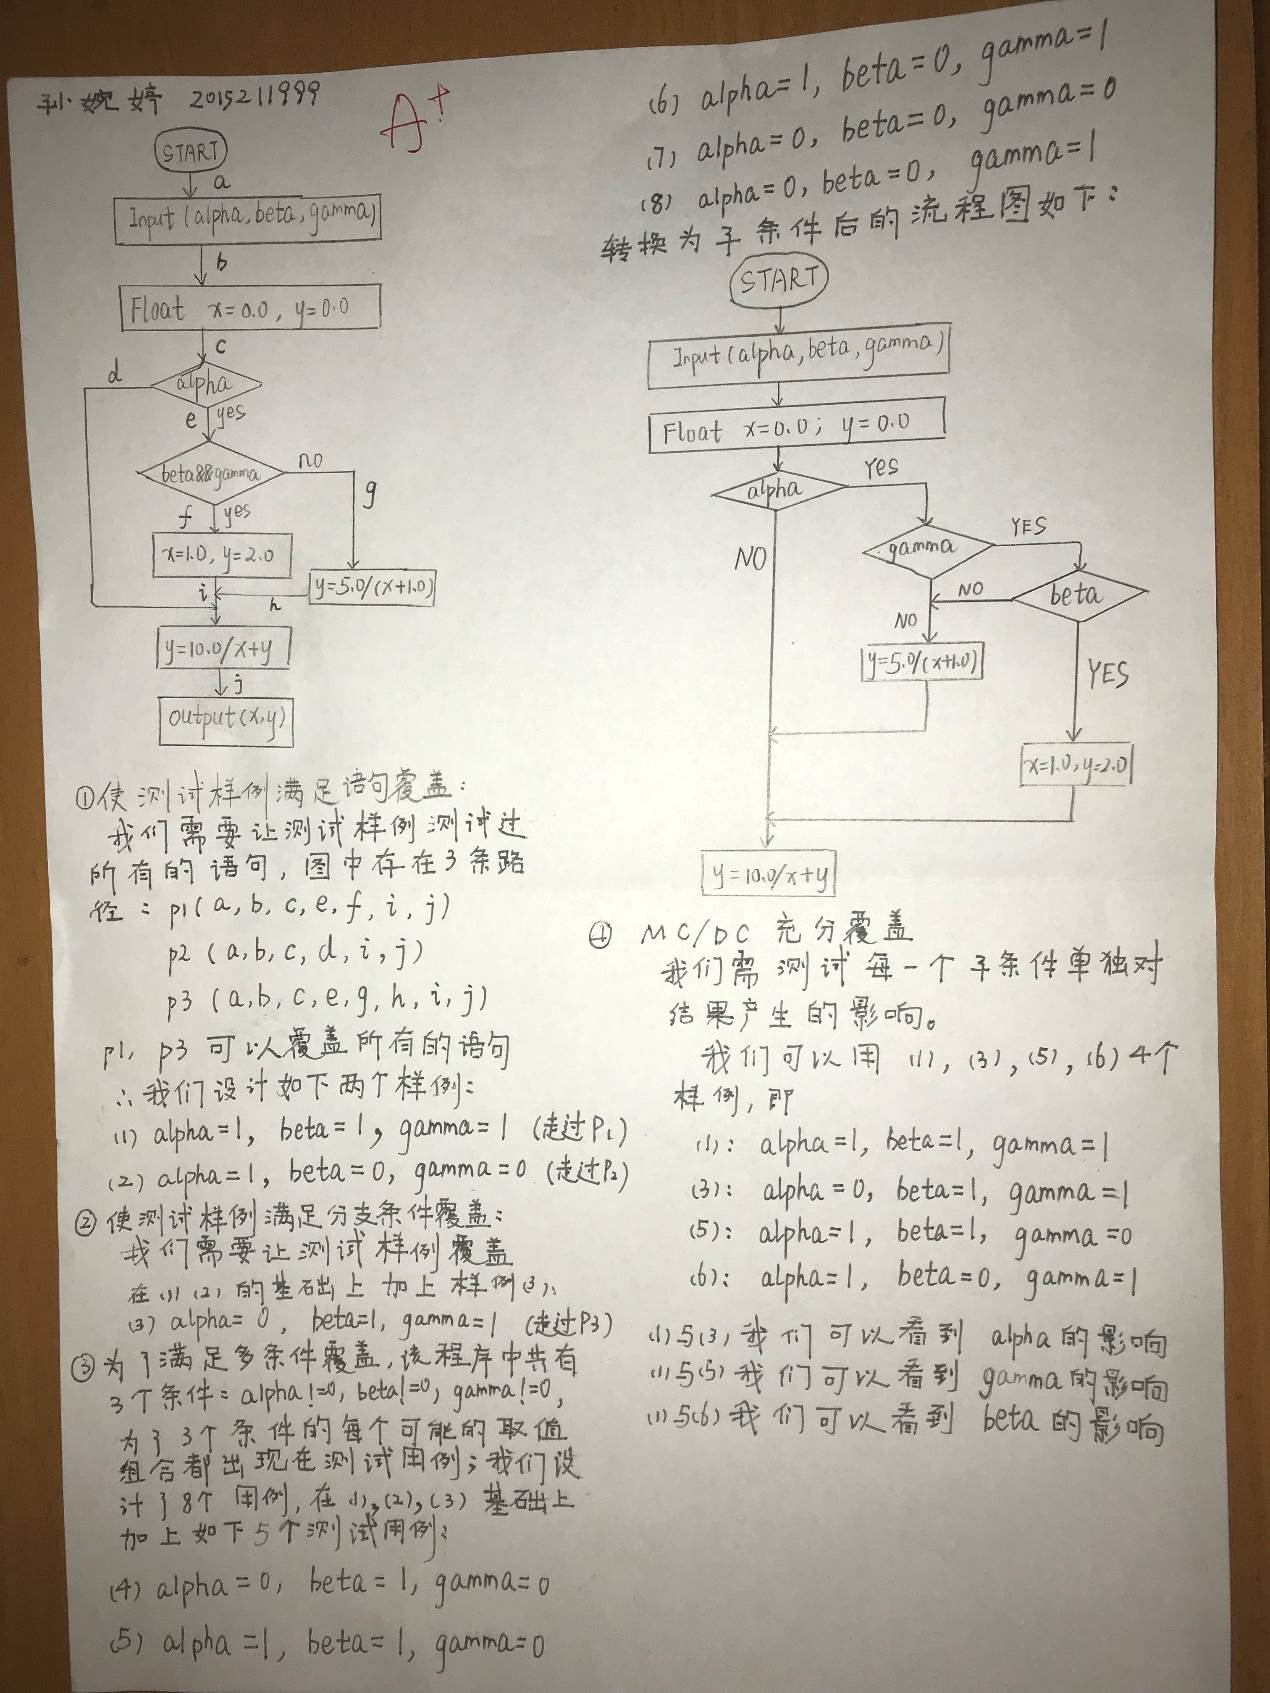 孙婉婷 2015211999
A+
START
a
Input(alpha,beta,gamma)
b
Float x=0.0, y=0.0
c
d
alpha
e yes
beta&&gamma
no
g
f yes
x=1.0, y=2.0
y=5.0/(x+1.0)
i
h
y=10.0/x+y
j
output(x,y)
①使测试样例满足语句覆盖:
我们需要让测试样例测试过
所有的语句,图中存在3条路
径: p1(a,b,c,e,f,i,j)
p2 (a,b,c,d,i,j)
p3 (a,b,c,e,g,h,i,j)
p1, p3 可以覆盖所有的语句
∴我们设计如下两个样例:
(1) alpha=1, beta=1, gamma=1 (走过P1)
(2) alpha=1, beta=0, gamma=0 (走过P2)
②使测试样例满足分支条件覆盖:
我们需要让测试样例覆盖
在(1)(2)的基础上加上样例(3):
(3) alpha=0, beta=1, gamma=1 (走过P3)
③为了满足多条件覆盖,该程序中共有
3个条件: alpha!=0, beta!=0, gamma!=0,
为了3个条件的每个可能的取值
组合都出现在测试用例;我们设
计了8个用例,在(1),(2),(3)基础上
加上如下5个测试用例:
(4) alpha=0, beta=1, gamma=0
(5) alpha=1, beta=1, gamma=0
(6) alpha=1, beta=0, gamma=1
(7) alpha=0, beta=0, gamma=0
(8) alpha=0, beta=0, gamma=1
转换为子条件后的流程图如下:
START
Input(alpha,beta,gamma)
Float x=0.0; y=0.0
alpha
YES
NO
gamma
YES
beta
NO
NO
y=5.0/(x+1.0)
YES
x=1.0,y=2.0
y=10.0/x+y
④ MC/DC 充分覆盖
我们需测试每一个子条件单独对
结果产生的影响。
我们可以用 (1), (3), (5), (6) 4个
样例,即
(1): alpha=1, beta=1, gamma=1
(3): alpha=0, beta=1, gamma=1
(5): alpha=1, beta=1, gamma=0
(6): alpha=1, beta=0, gamma=1
(1)与(3)我们可以看到 alpha的影响
(1)与(5)我们可以看到 gamma的影响
(1)与(6)我们可以看到 beta的影响